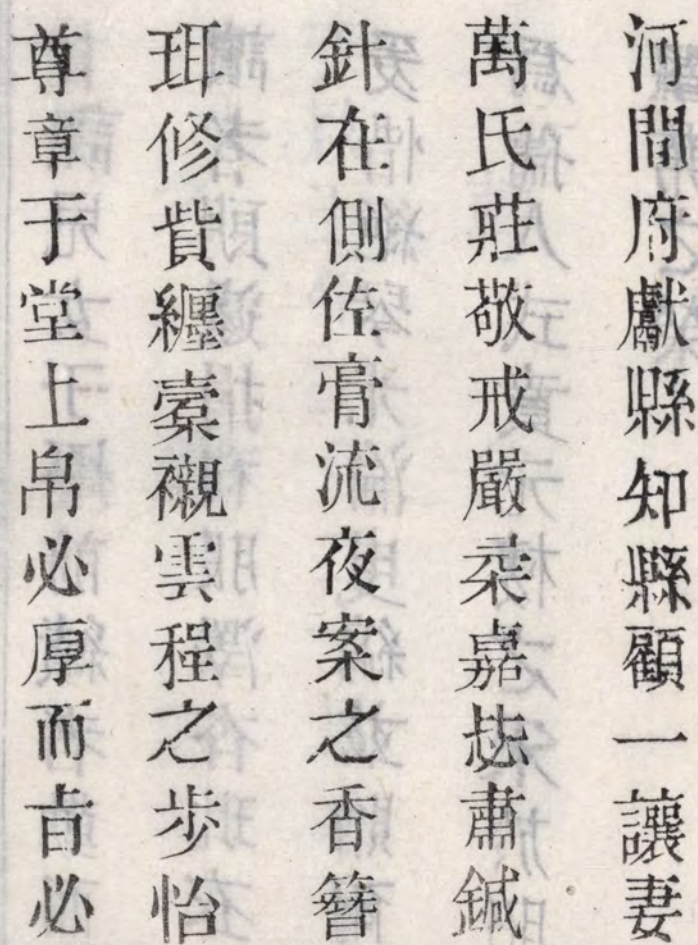 河間府獻縣知縣顧一讓妻
萬氏莊敬戒嚴柔嘉誌肅鍼
針在側佐膏流夜案之香簪
珥修貲纒橐襯雲程之步怡
尊章于堂上帛必厚而旨必